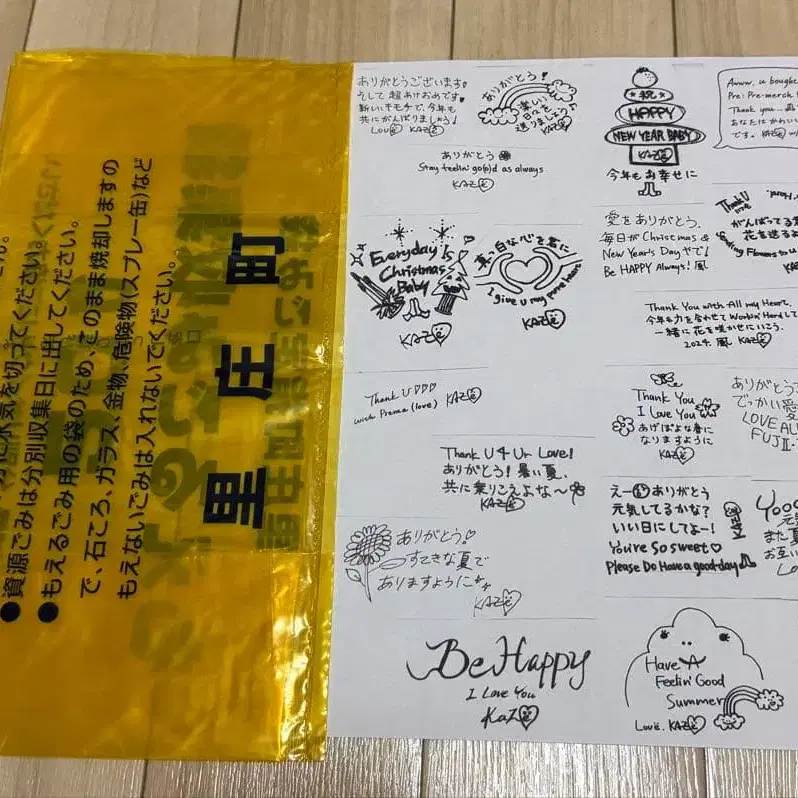 里庄町
●資源ごみは分別収集日に出してください。
●もえるごみ用の袋のため、このまま焼却しますの
で、石ころ、ガラス、金物、危険物(スプレー缶)など
もえないごみは入れないでください。
ありがとうございます
そして超あけおめです。
新しいキモチで、今年も
共にがんばりましょう!
LOVE KAZE
ありがとう!
楽しい
日々を
送りましょう
KAZE
祝
HAPPY
NEW YEAR BABY
KAZE
今年もお幸せに
Aww, u bough
Pre: Pre-merch
Thank you
あなたにかわいい
です。 KAZE
ありがとう
Stay feelin' go(o)d as always
KAZE
Everyday Is
Christmas
Baby
KAZE
真っ白な心を君に
I give u my pure heart
KAZE
愛をありがとう。
毎日が Christmas &
New Year's Day
Be HAPPY Always! 風
Thank U
がんばってる
花を送る
Sending Flowers to U
Thank You with All my Heart,
今年も力を合わせて Workin' Hard
一緒に花を咲かせにいこう。
2024. 風 KAZE
Thank U♡♡♡
with Prema (love) KAZE
Thank You
I Love You
あげぽよな春に
なりますように
KAZE
ありがとう
でっかい愛
LOVE AL
FUJII
Thank U 4 Ur Love!
ありがとう! 暑い夏、
共に乗りこえよな〜
KAZE
えー ありがとう
元気してるかな?
いい日にしてよー!
You're So sweet♡
Please Do Have a good day
KAZE
Yooo
元気
また夏
お互い
Lo
ありがとう♡
すてきな夏で
ありますように
KAZE
Be Happy
I Love You
KaZE
Have A
Feelin' Good
Summer
Love. KAZE